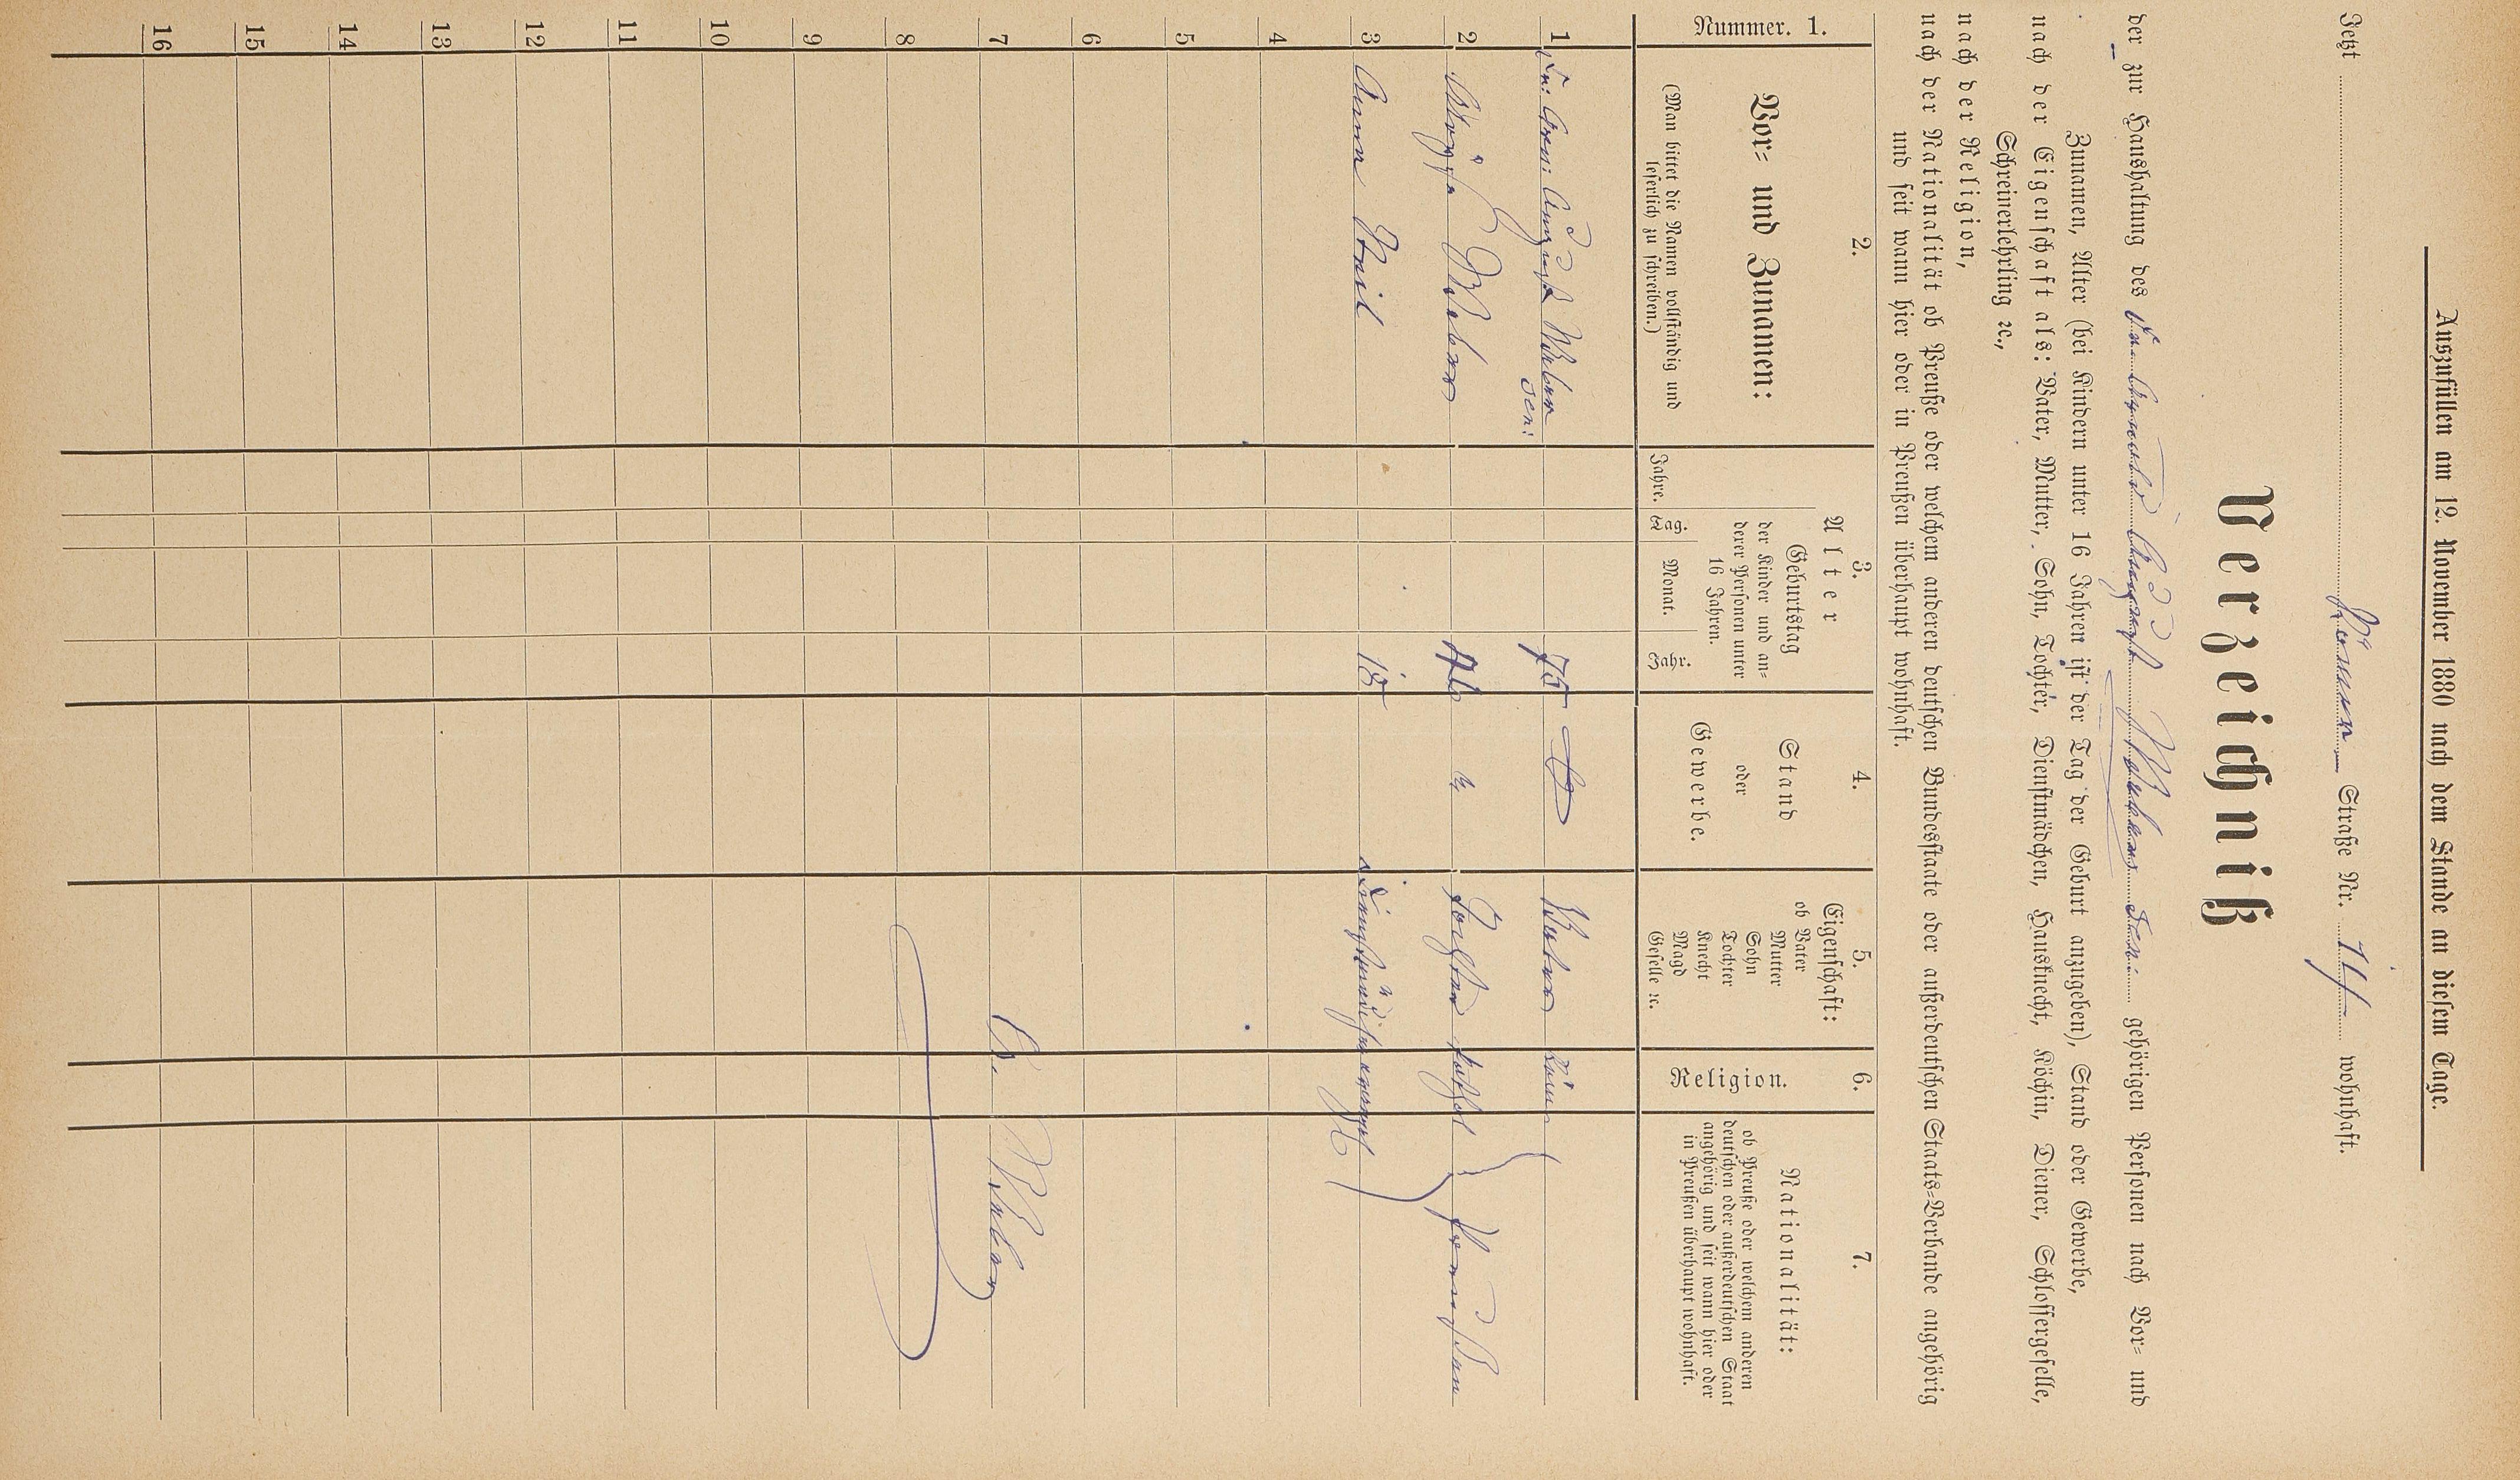 Auszufüllen am 12. November 1880 nach dem Stande an diesem Tage.
Jetzt Römer Straße Nr. 14 wohnhaft.
Verzeichniß
der zur Haushaltung des August Weber sen: gehörigen Personen nach Vor- und
Zunamen, Alter (bei Kindern unter 16 Jahren ist der Tag der Geburt anzugeben), Stand oder Gewerbe,
nach der Eigenschaft als: Vater, Mutter, Sohn, Tochter, Dienstmädchen, Hausknecht, Köchin, Diener, Schlossergeselle,
Schreinerlehrling ꝛc.,
nach der Religion,
nach der Nationalität ob Preuße oder welchem anderen deutschen Bundesstaate oder außerdeutschen Staats-Verbande angehörig
und seit wann hier oder in Preußen überhaupt wohnhaft.
Nummer. 1.
2.
Vor- und Zunamen:
(Man bittet die Namen vollständig und
leserlich zu schreiben.)
3.
Alter
Geburtstag
der Kinder und an-
derer Personen unter
16 Jahren.
Jahre. Tag. Monat. Jahr.
4.
Stand
oder
Gewerbe.
5.
Eigenschaft:
ob Vater
Mutter
Sohn
Tochter
Knecht
Magd
Geselle ꝛc.
6.
Religion.
7.
Nationalität:
ob Preuße oder welchen anderen
deutschen oder außerdeutschen Staat
angehörig und seit wann hier oder
in Preußen überhaupt wohnhaft.
1 August Weber sen: 75 Vater
2 Weber Tochter kathol Preußen
3 Anna 18
4
5
6
7 A. Weber
8
9
10
11
12
13
14
15
16